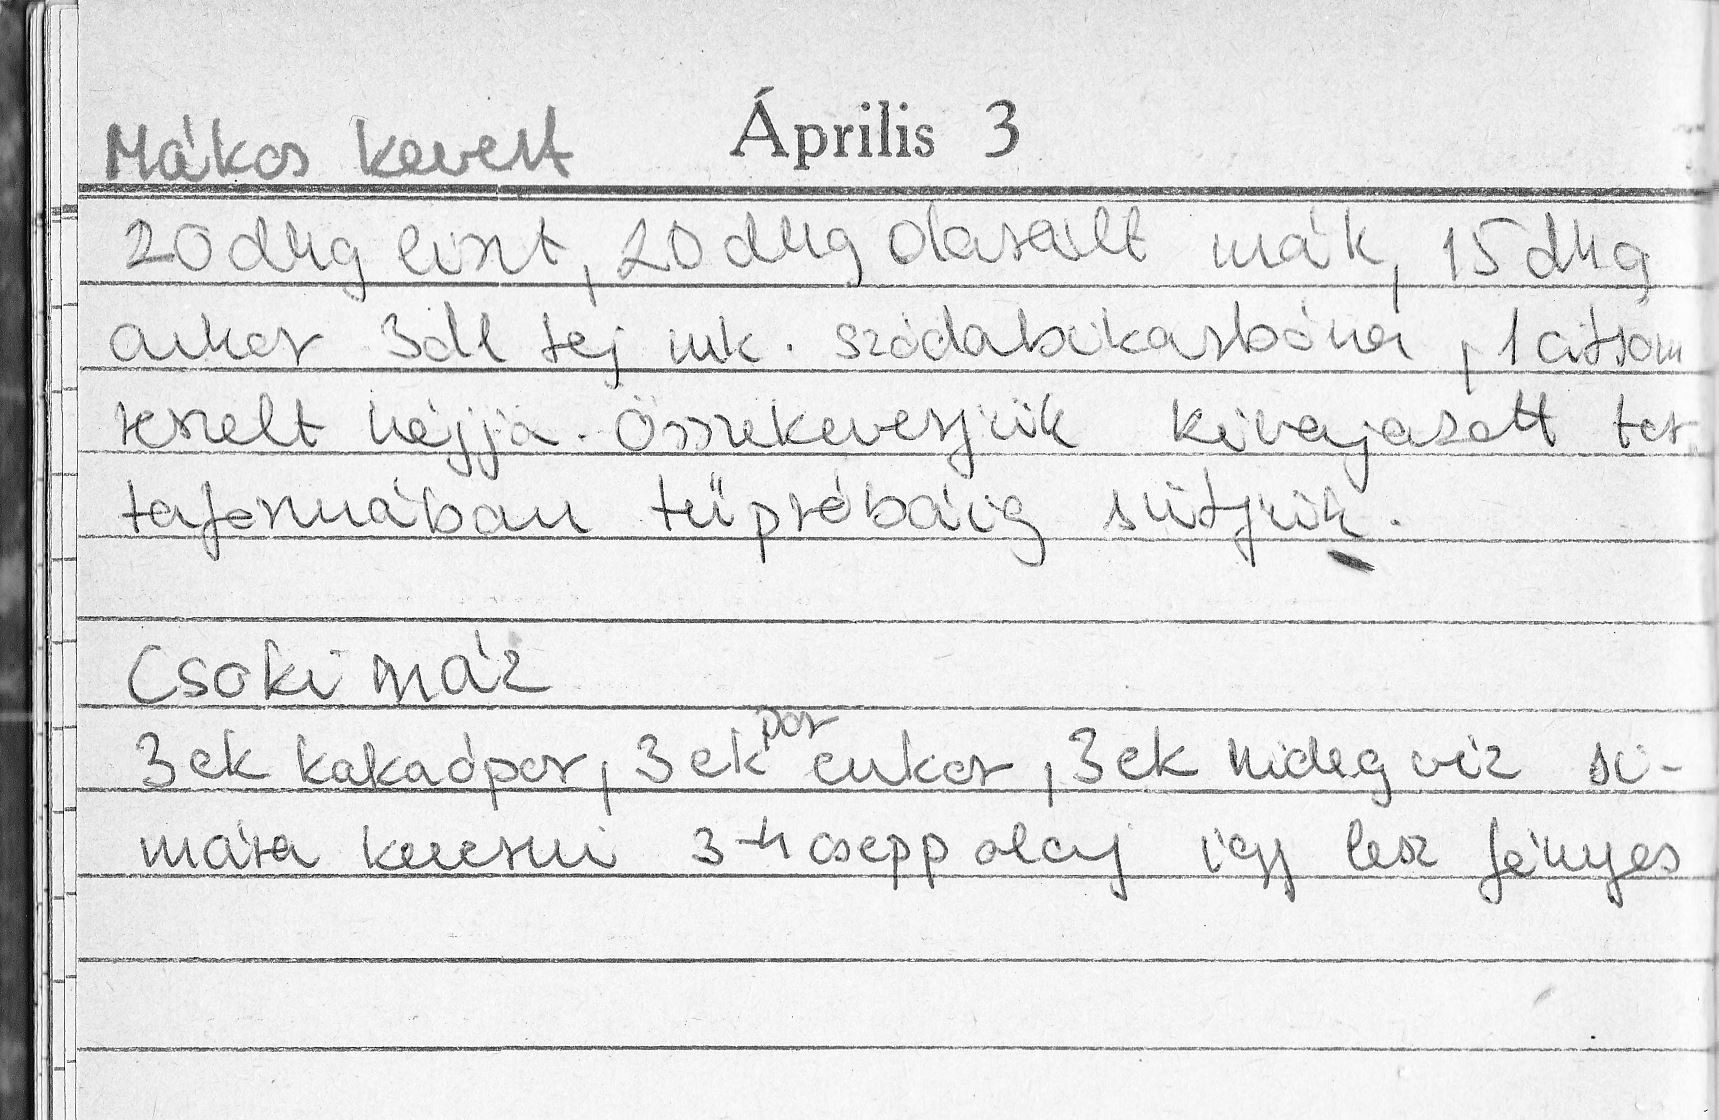 Április 3
Mákos kevert
20 dkg liszt, 20 dkg darált mák, 15 dkg
cukor 3dl tej mk. szódabikarbóna, 1 citrom
reszelt héjja. Összekeverjük kivajazott tor
taformában tűpróbáig sütjük.
Csoki máz
3 ek kakaópor, 3 ek por cukor, 3 ek hideg víz si-
mára keverni 3-4 csepp olaj így lesz fényes